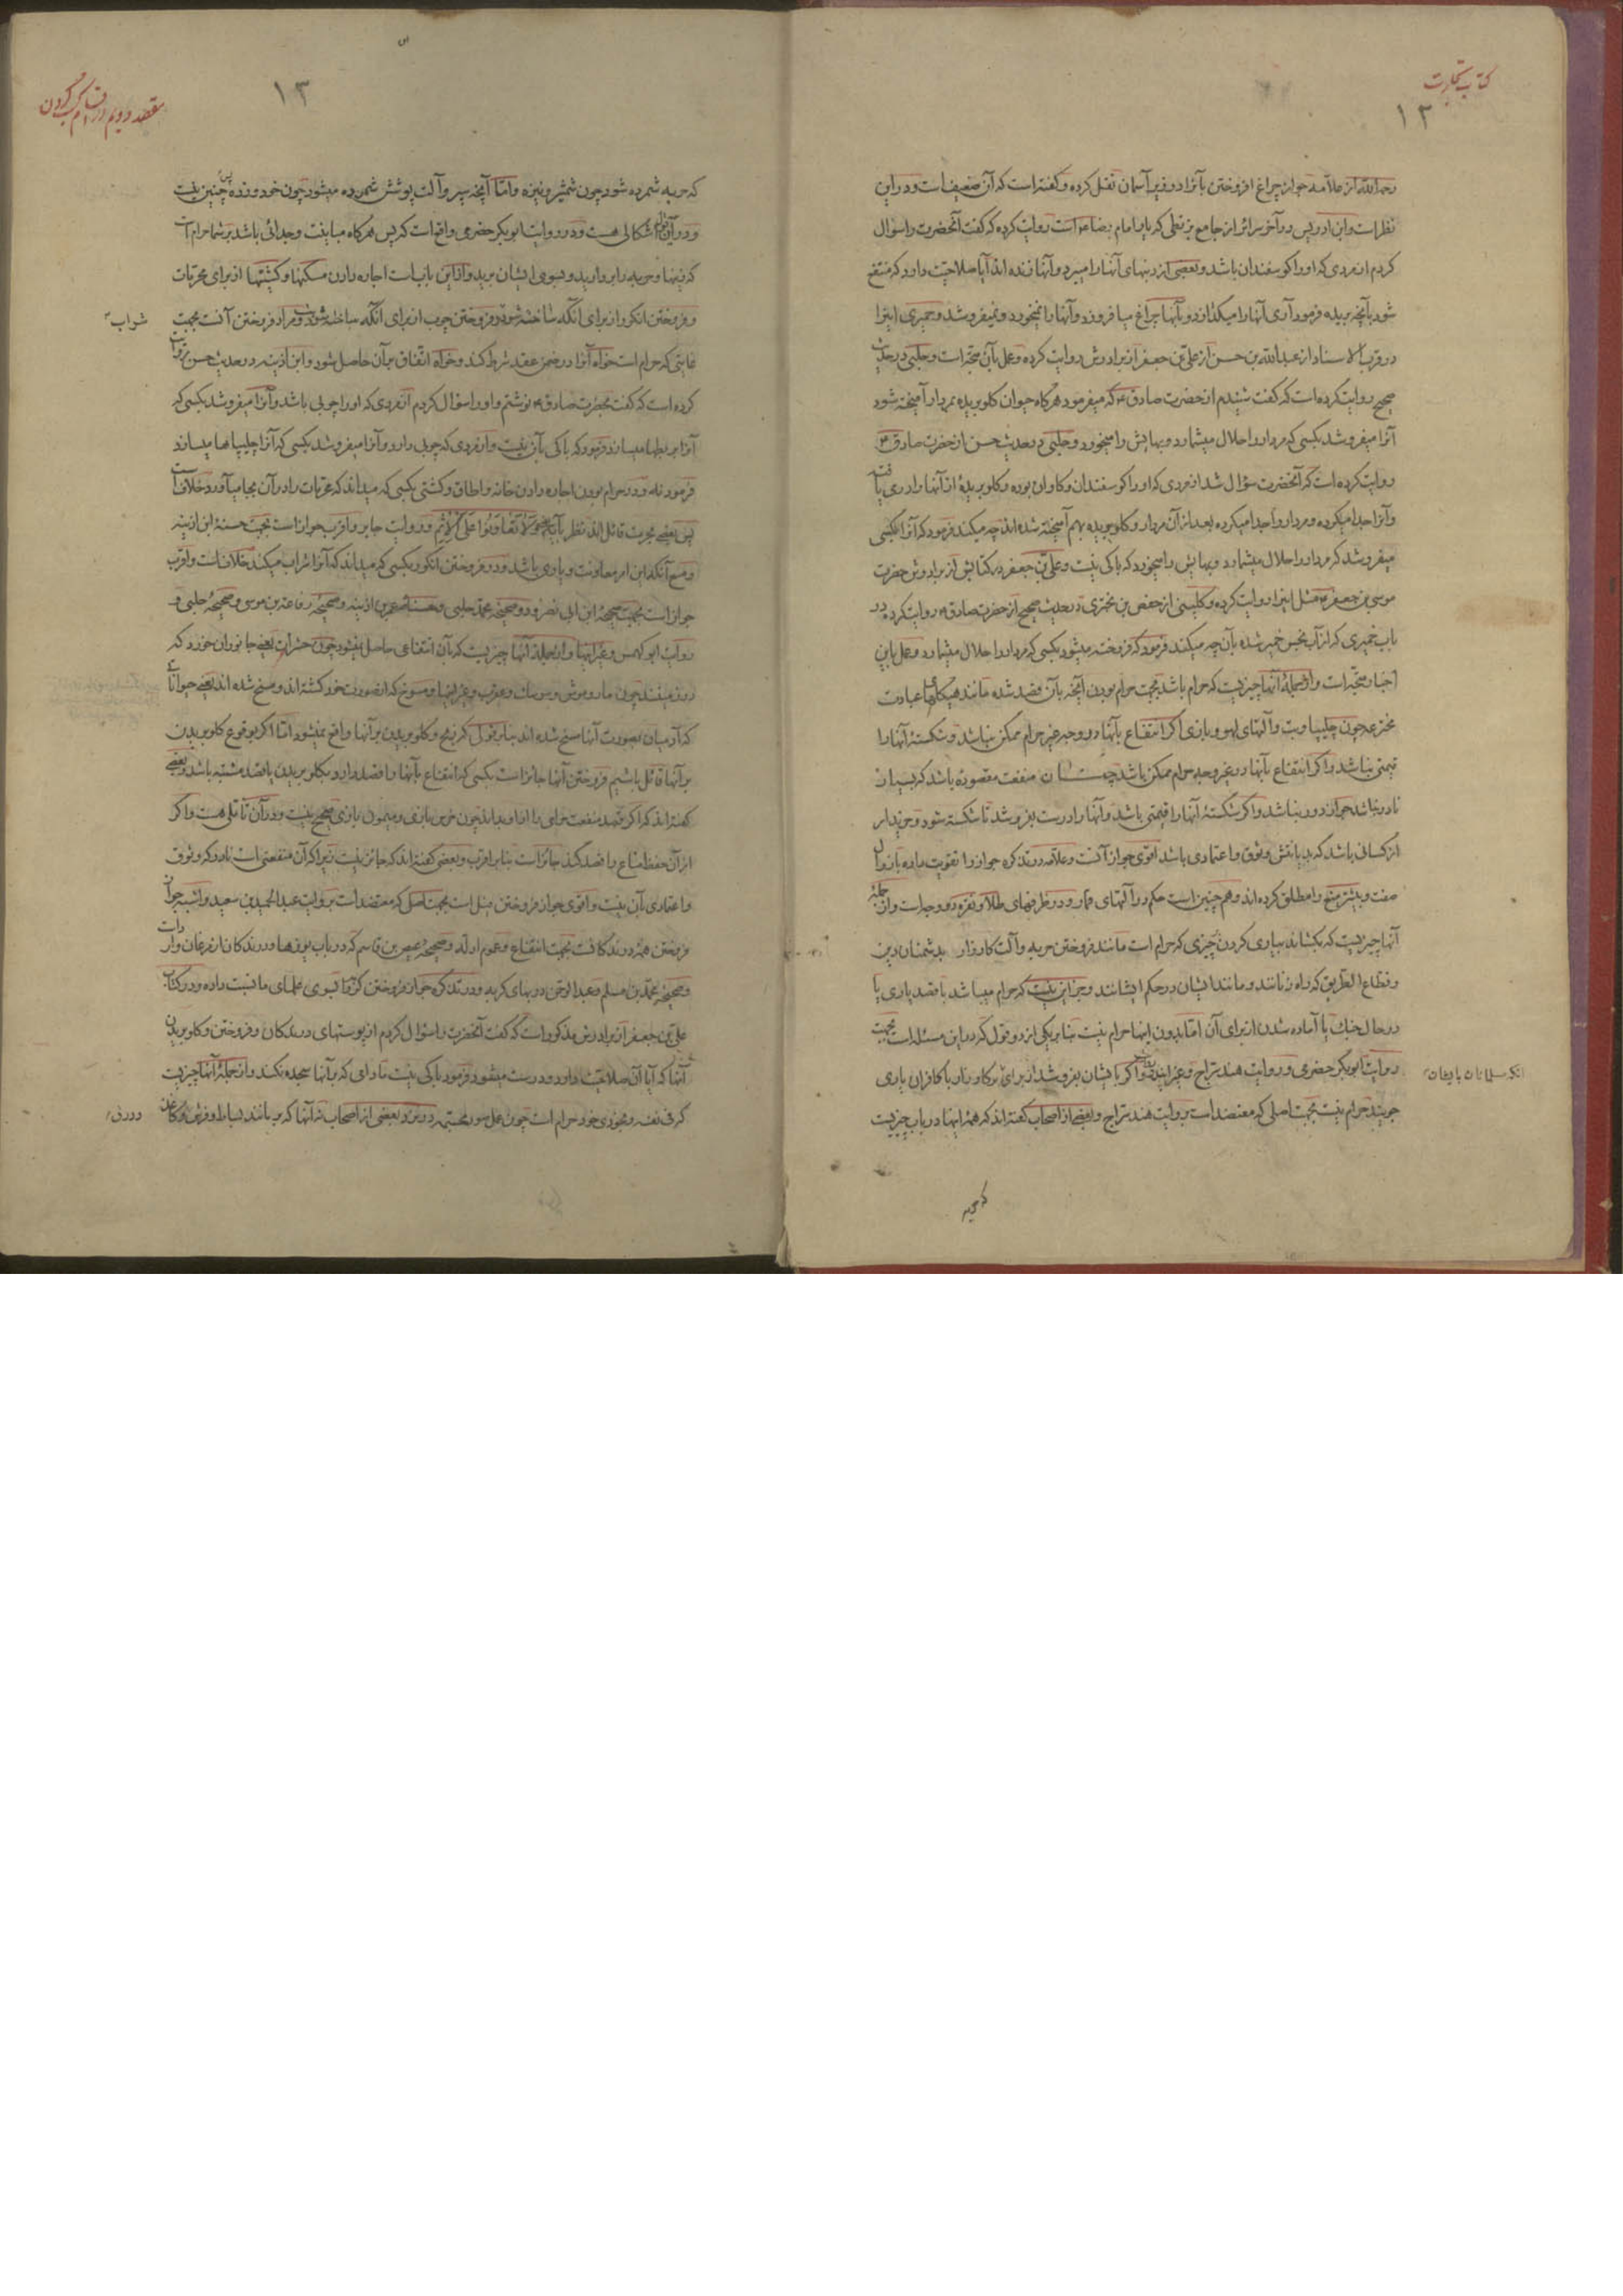 کتاب تجارت
۱۲
رحمه الله از علامه جواز چراغ افروختن بآنرا در زیر آسمان نقل کرده و گفته است که آن ضعیف است و در این
نظر است و ابن ادریس در آخر سرائر از جامع بزنطی که یار امام رضا ع است روایت کرده که گفت آنحضرت را سؤال
کردم از مردی که او را کوسفندان باشد و بعضی از دنبهای آنها را میبرد و آنها زنده اند آیا صلاحیت دارد که منتفع
شود بآنچه بریده فرمود آری آنها را میکذازد و بآنها چراغ میافروزد و آنها را نمیخورد و نمیفروشد و حمیری اینرا
در قرب الاسناد از عبدالله بن حسن از علی بن جعفر از برادرش روایت کرده و عمل بآن متجه است و حلبی در حدیث
صحیح روایت کرده است که گفت شنیدم از حضرت صادق ع که میفرمود هرگاه حیوان کلو بریده بمردار آمیخته شود
آنرا میفروشد بکسی که مردار را حلال میشمارد و بهایش را میخورد و حلبی در حدیث حسن از حضرت صادق ع
روایت کرده است که آنحضرت سؤال شد از مردی که او را کوسفندان و کاوان بوده و کلو بریدۀ از آنها را در می یافته
و آنرا جدا میکرده و مردار را جدا میکرده بعد از آن مردار و کلو بریده بهم آمیخته شده اند چه میکند فرمود که آنرا بکسی
میفروشد که مردار را حلال میشمارد و بهایش را میخورد که باکی نیست و علی بن جعفر در کتابش از برادرش حضرت
موسی بن جعفر ع مثل اینرا روایت کرده و کلینی از حفص بن بختری در حدیث صحیح از حضرت صادق ع روایت کرده در
باب خمیری که از آب نجس خمیر شده بآن چه میکند فرمود که فروخته میشود بکسی که مردار را حلال میشمارد و عمل باین
اخبار متجه است و از جملۀ آنها چیزیست که حرام باشد بجهت حرام بودن آنچه بآن قصد شده مانند هیکلهای عبادت
مخترعه چون چلیپا و بت و آلتهای لهو و بازی اگر انتفاع بآنها در وجه غیر حرام ممکن نباشد و شکستۀ آنها را
قیمتی نباشد و اگر انتفاع بآنها در غیر وجه حرام ممکن باشد چنانکه آن منفعت مقصوده باشد که بسیار
نادر نباشد جواز دور نباشد و اگر شکستۀ آنها را قیمتی باشد و آنها را درست بفروشد تا شکسته شود و خریدار
از کسانی باشد که بدیانتش وثوق و اعتمادی باشد اقوی جواز آنست و علامه در تذکره جواز را تقویت داده با زوال
صفت و بیشتر منع را مطلق کرده اند و هم چنین است حکم در آلتهای قمار و در ظرفهای طلا و نقره دو وجه است و از جمله
آنها چیزیست که بکشاند بیاری کردن چیزی که حرام است مانند فروختن حربه و آلت کارزار بدشمنان دین
و قطاع الطریق که راه زنانند و مانند ایشان در حکم ایشانند و جز این نیست که حرام میباشد با قصد یاری یا
در حال جنک یا آماده شدن از برای آن اما بدون اینها حرام نیست بنا بر یکی از دو قول که در این مسئله است بجهت
روایت ابوبکر حضرمی و روایت هند سراج و غیر اینها و اگر بایشان بفروشد از برای آنکه
جویند حرام نیست بجهت اصلی که معتضد است بروایت هند سراج و بعضی از اصحاب گفته اند که همۀ اینها در باب چیزیست
که حربه
مقصد دویم در اقسام کسب کردن
۱۳
که حربه شمرده شود چون شمشیر و نیزه و اما آنچه سپر و آلت پوشش شمرده میشود چون خود و زره پس چنین نیست
و در آن اشکالی هست و در روایت ابوبکر حضرمی واقعست که پس هرگاه مباینت و جدائی باشد بر شما حرام است
که زینها و حربه را بردارید و بسوی ایشان برید و از این بابست اجاره دادن مسکنها و کشتیها از برای محرمات
و فروختن انکور از برای آنکه ساخته شود و فروختن چوب از برای آنکه ساخته شود بت و مراد فروختن آنست بجهت
شراب
غایتی که حرام است خواه آنرا در ضمن عقد شرط کند و خواه اتفاق بر آن حاصل شود و ابن اذینه در حدیث حسن روایت
کرده است که گفت بحضرت صادق ع نوشتم و او را سؤال کردم از مردی که او را چوبی باشد و آنرا میفروشد بکسی که
آنرا بربطها میسازد فرمود که باکی بآن نیست و از مردی که چوبی دارد و آنرا میفروشد بکسی که آنرا چلیپاها میسازد
فرمود نه و در حرام بودن اجاره دادن خانه و اطاق و کشتی بکسی که میداند که محرمات را در آن بجا میآورد خلافست
پس بعضی بحرمت قائل اند نظر بآیۀ وَلَا تَعَاوَنُوا عَلَى الْإِثْمِ و روایت جابر و اقرب جواز است بجهت حسنۀ ابن اذینه
و منع آنکه این امر معاونت و یاری باشد و در فروختن انکور بکسی که میداند که آنرا شراب میکند خلافست و اقرب
جواز است بجهت صحیحۀ ابن ابی نصر و دو صحیحۀ محمد حلبی و حسنۀ عمر بن اذینه و صحیحۀ رفاعة بن موسی و صحیحۀ حلبی و
روایت ابو کهمس و غیر اینها و از جملۀ آنها چیزیست که بآن انتفاعی حاصل نمیشود چون حشرات یعنی جانوران خورد که
در زمینند چون مار و موش و سوسک و عقرب و غیر اینها و مسوخ که از صورت خود کشته اند و مسخ شده اند یعنی حیواناتی
که آدمیان بصورت آنها مسخ شده اند بنا بر قول که ذبح و کلو بریدن بر آنها واقع نمیشود اما اگر بوقوع کلو بریدن
بر آنها قائل باشیم فروختن آنها جائز است بکسی که انتفاع بآنها را قصد دارد بکلو بریدن یا قصد مشتبه باشد و بعضی
گفته اند که اگر قصد منفعت حرامی را از او بداند چون خرس بازی و میمون بازی صحیح نیست و در آن تأملی هست و اگر
از آن حفظ متاع را قصد کند جائز است بنا بر اقرب و بعضی گفته اند که جائز نیست زیرا که آن منفعتی است نادر که وثوق
و اعتمادی بآن نیست و اقوی جواز فروختن فیل است بجهت اصل که معتضد است بروایت عبدالحمید بن سعید و اشبه جواز
فروختن همۀ درندکانست بجهت انتفاع و عموم ادله و صحیحۀ عیص بن قاسم که در باب یوزها و درندکان از مرغان وارد است
و صحیحۀ محمد بن مسلم و عبدالرحمن در بهای کربه و در تذکره جواز فروختن کربه را بسوی علمای ما نسبت داده و در کتاب
علی بن جعفر از برادرش مذکور است که گفت آنحضرت را سؤال کردم از پوستهای درندکان و فروختن و کلو بریدن
آنها که آیا آن صلاحیت دارد و درست میشود فرمود باکی نیست مادامی که بر آنها سجده نکند و از جملۀ آنها چیزیست
که فی نفسه و بخودی خود حرام است چون عمل صورت مجسمه